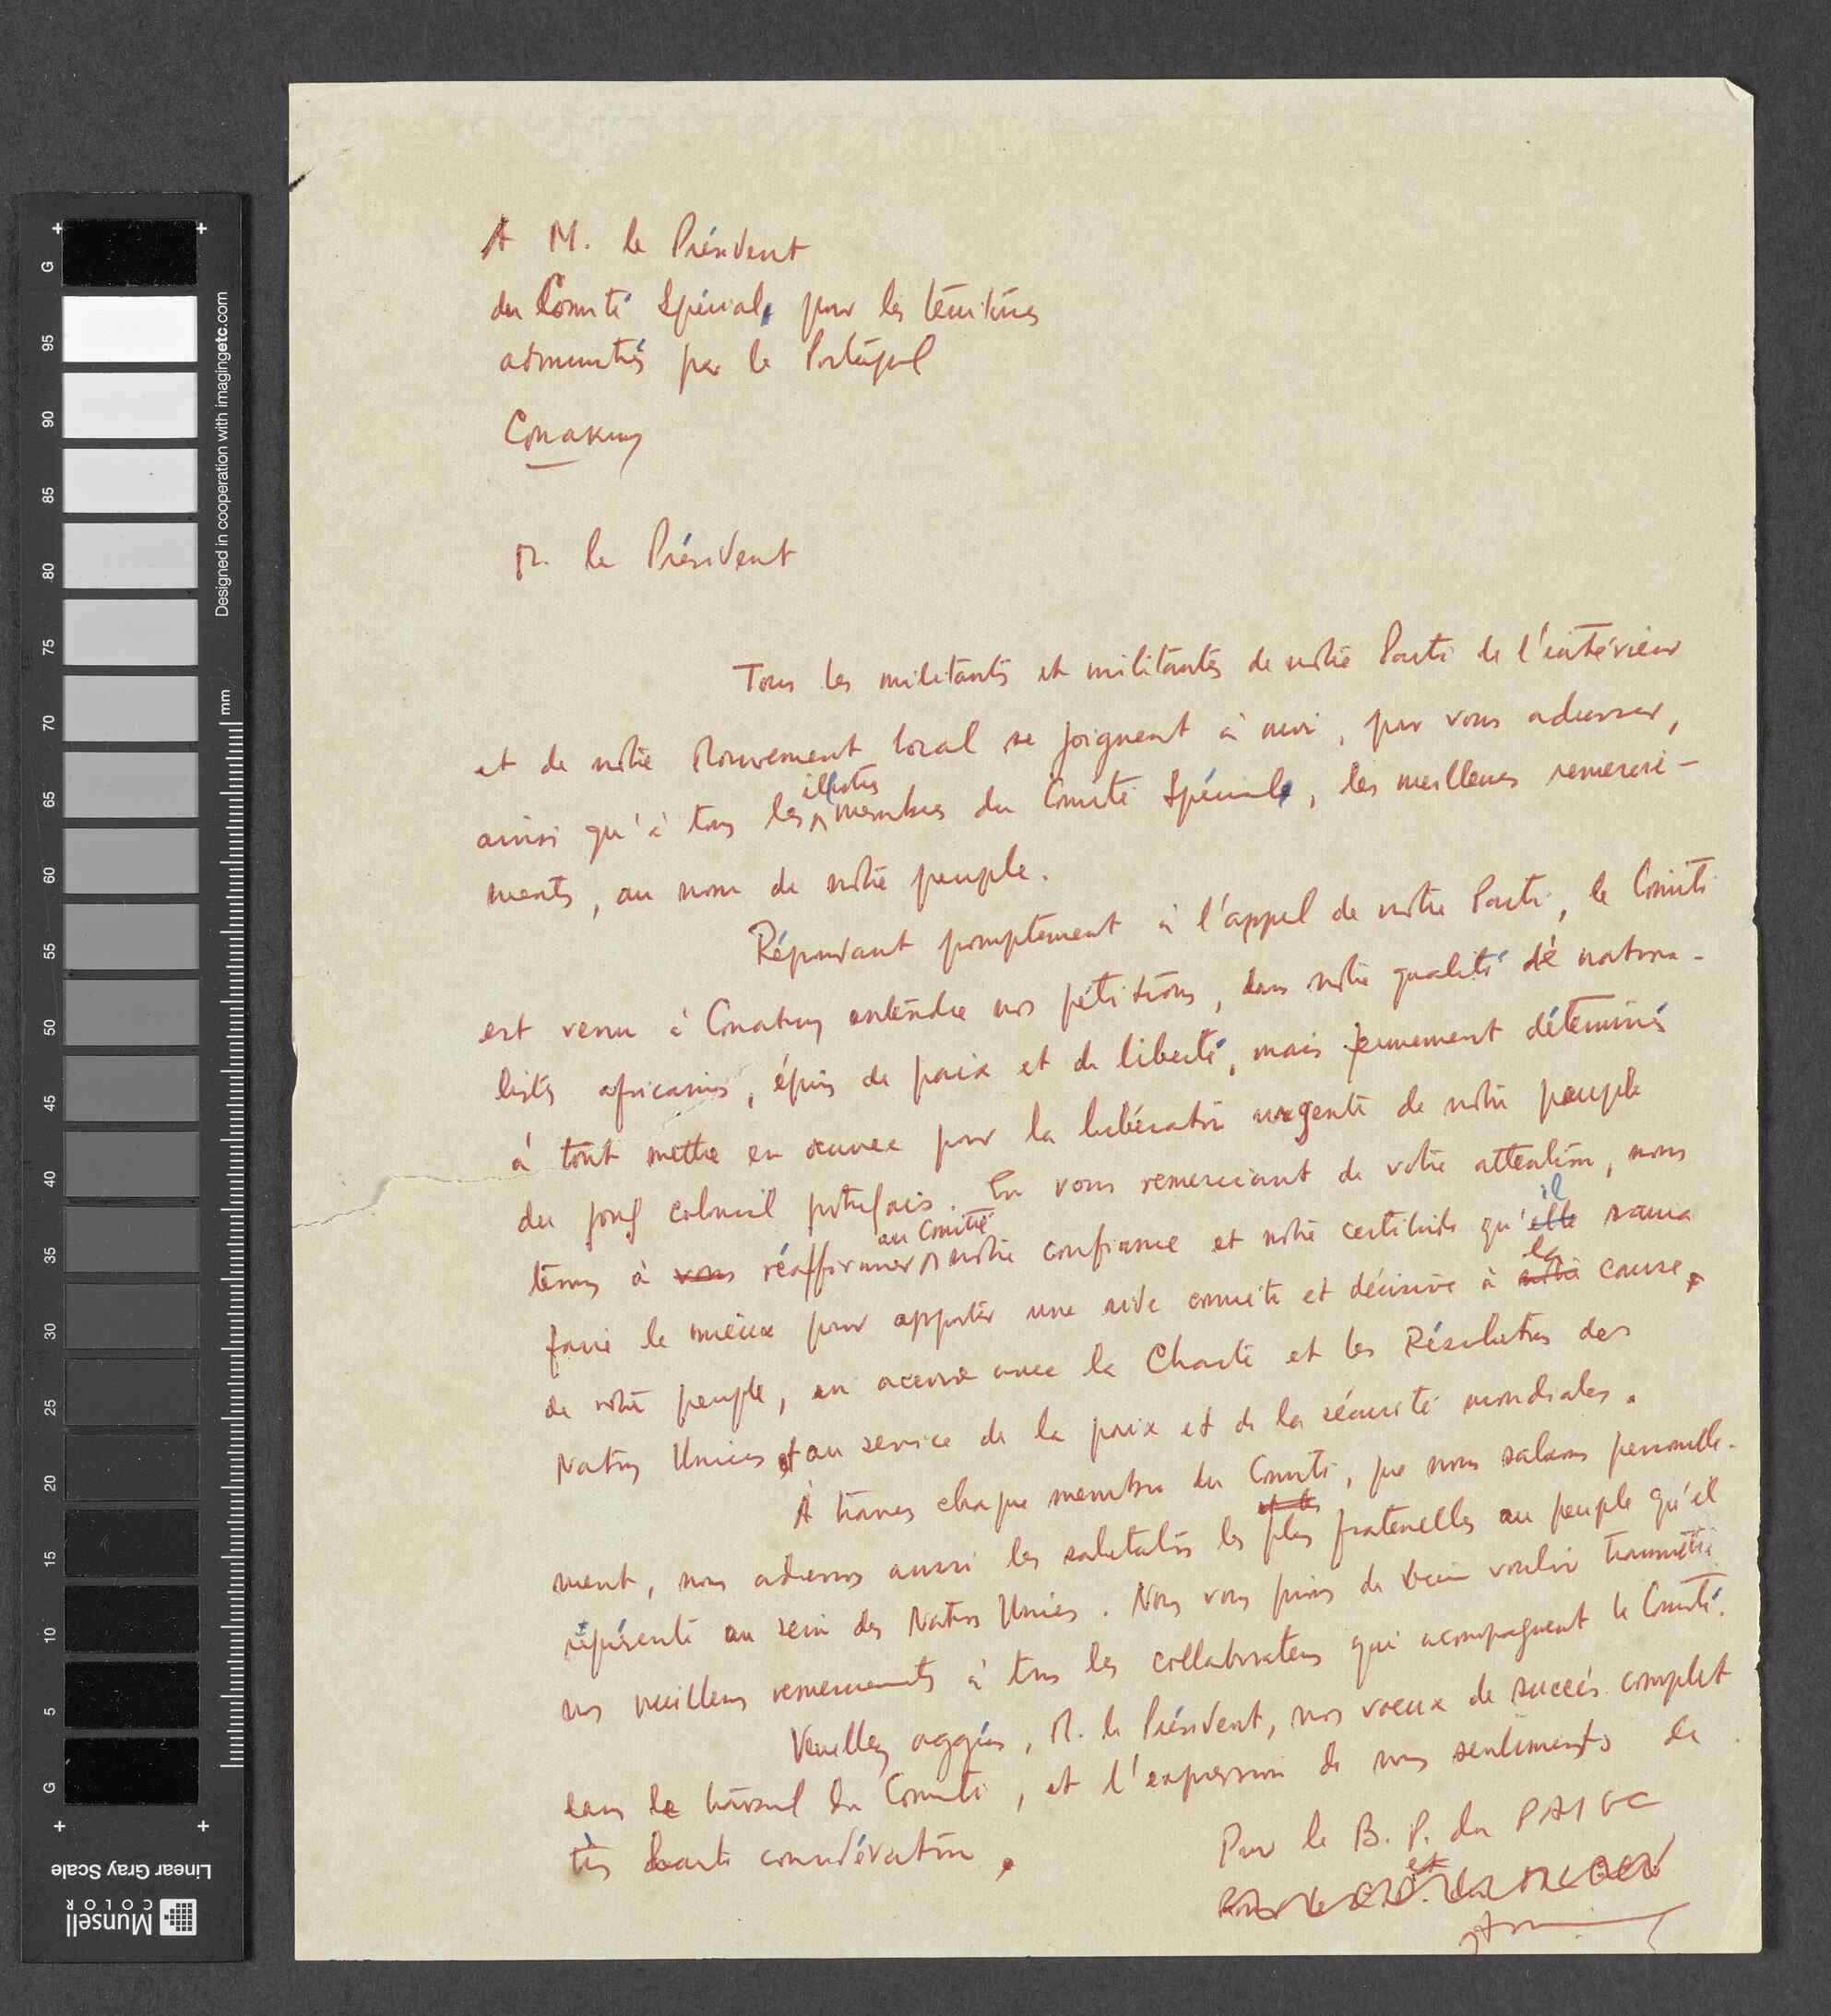 A M. le Président
du Comité Spécial, pour les territoires
administrés par le Portugal
Conakry
M. le Président
Tous les militants et militantes de notre Parti de l'intérieur
et de notre Mouvement local se joignent à moi, pour vous adresser,
ainsi qu'à tous les illustres membres du Comité Spécial, les meilleurs remercie-
ments, au nom de notre peuple.
Répondant promptement à l'appel de notre Parti, le Comité
est venu à Conakry entendre nos pétitions, dans notre qualité de nationa-
listes africains, épris de paix et de liberté, mais fermement déterminés
à tout mettre en œuvre pour la libération urgente de notre peuple
du joug colonial portugais. En vous remerciant de votre attention, nous
tenons à vous réaffirmer au Comité notre confiance et notre certitude qu'elle il saura
faire le mieux pour apporter une aide concrète et décisive à notre la cause
de notre peuple, en accord avec la Charte et les Résolutions des
Nations Unies et au service de la paix et de la sécurité mondiales.
À travers chaque membre du Comité, que nous saluons personnelle-
ment, nous adressons aussi les salutations les plus fraternelles au peuple qu'il
représente au sein des Nations Unies. Nous vous prions de bien vouloir transmettre
nos meilleurs remerciements à tous les collaborateurs qui acompagnent le Comité.
Veuillez aggréer, M. le Président, nos voeux de succès complet
dans le travail du Comité, et l'expression de nos sentiments de
très haute considération.
Pour le B. P. du PAIGC